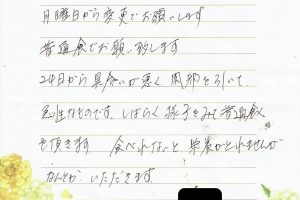 月曜日から変更でお願いします
普通食でお願い致します
24日から具合いが悪く、風邪を引いて
急性なものです。しばらく様子をみて普通食
を頂きます 食べれないと栄養がとれませんが
なんとか、いただきます